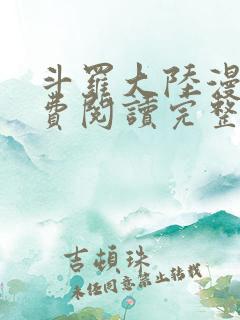 斗羅大陸漫
費閱讀完整
吉頓珠
未经同意禁止转载